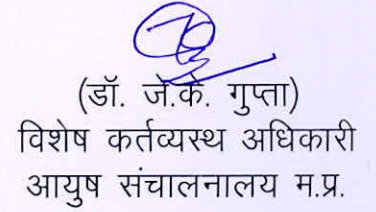 (डॉ. जे.के. गुप्ता)
विशेष कर्तव्यस्थ अधिकारी
आयुष संचालनालय म.प्र.